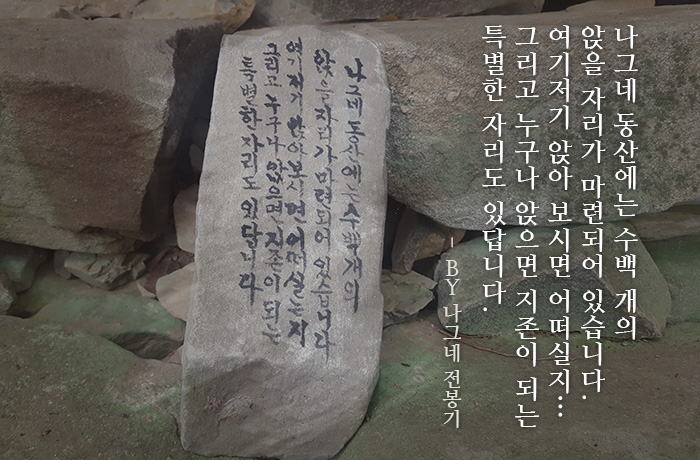 나그네 동산에는 수백 개의
앉을 자리가 마련되어 있습니다.
여기저기 앉아 보시면 어떠실지…
그리고 누구나 앉으면 지존이 되는
특별한 자리도 있답니다.
– BY 나그네 전봉기
나그네 동산에는 수백개의
앉을 자리가 마련되어 있습니다
여기저기 앉아 보시면 어떠실는지
그리고 누구나 앉으면 지존이 되는
특별한 자리도 있답니다